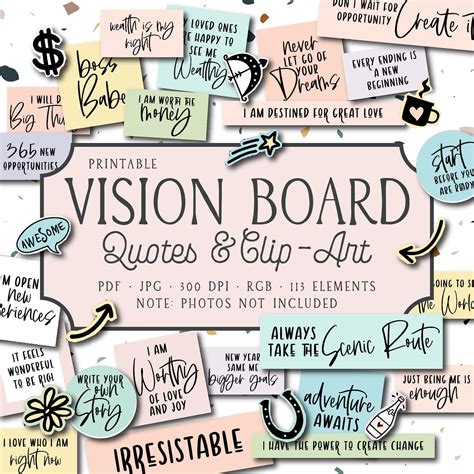 wealth is my
right
MY LOVED ONES
ARE HAPPY TO
SEE ME
Wealthy
DON'T WAIT FOR
OPPORTUNITY
Create it
boss
Babe
never
LET GO OF
YOUR
Dreams
EVERY ENDING IS
A NEW
BEGINNING
I WILL DO
Big Thi
I AM WORTH THE
money
I AM DESTINED FOR GREAT LOVE
365 NEW
OPPORTUNITIES
start
BEFORE YOU
ARE READY
PRINTABLE
VISION BOARD
Quotes & Clip-Art
PDF · JPG · 300 DPI · RGB · 113 ELEMENTS
NOTE: PHOTOS NOT INCLUDED
AWESOME
I'M OPEN
new
eriences
GOING TO S
THE WORLD
ALWAYS
TAKE THE Scenic Route
IT FEELS
WONDERFUL
TO BE RIG
I AM
Worthy
OF LOVE
AND JOY
NEW YEAR
SAME ME
bigger goals
JUST BEING ME IS
enough
WRITE YOUR
OWN
Story
adventure
AWAITS
I LOVE WHO I AM
right now
IRRESISTABLE
I HAVE THE POWER TO CREATE CHANGE